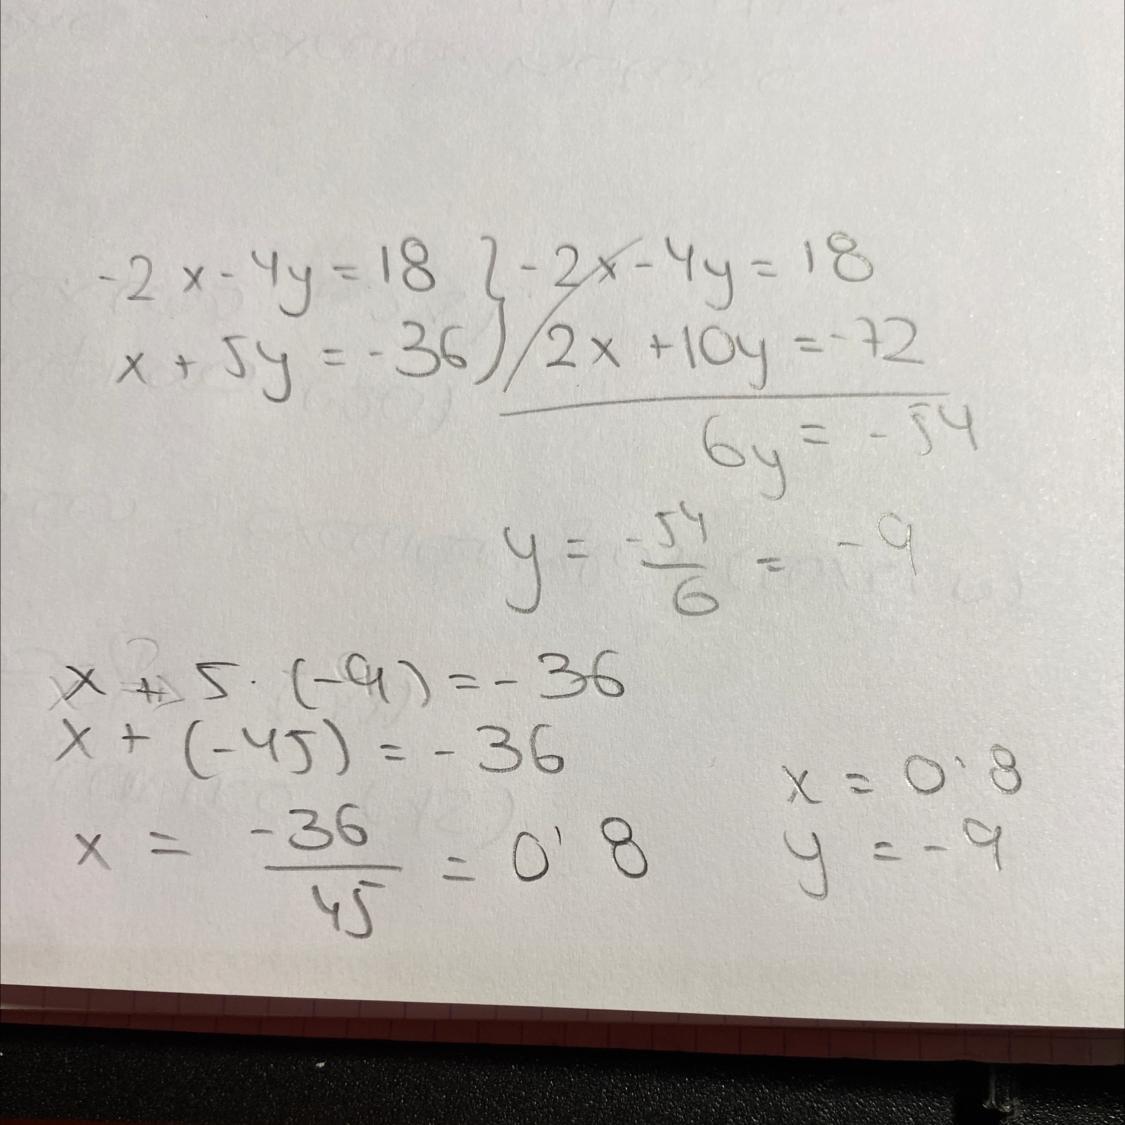 -2x-4y=18 } -2x-4y=18
x+5y=-36 } 2x+10y=-72
6y=-54
y = -54/6 = -9
x + 5·(-9) = -36
x + (-45) = -36
x = -36/45 = 0'8
x = 0'8
y = -9